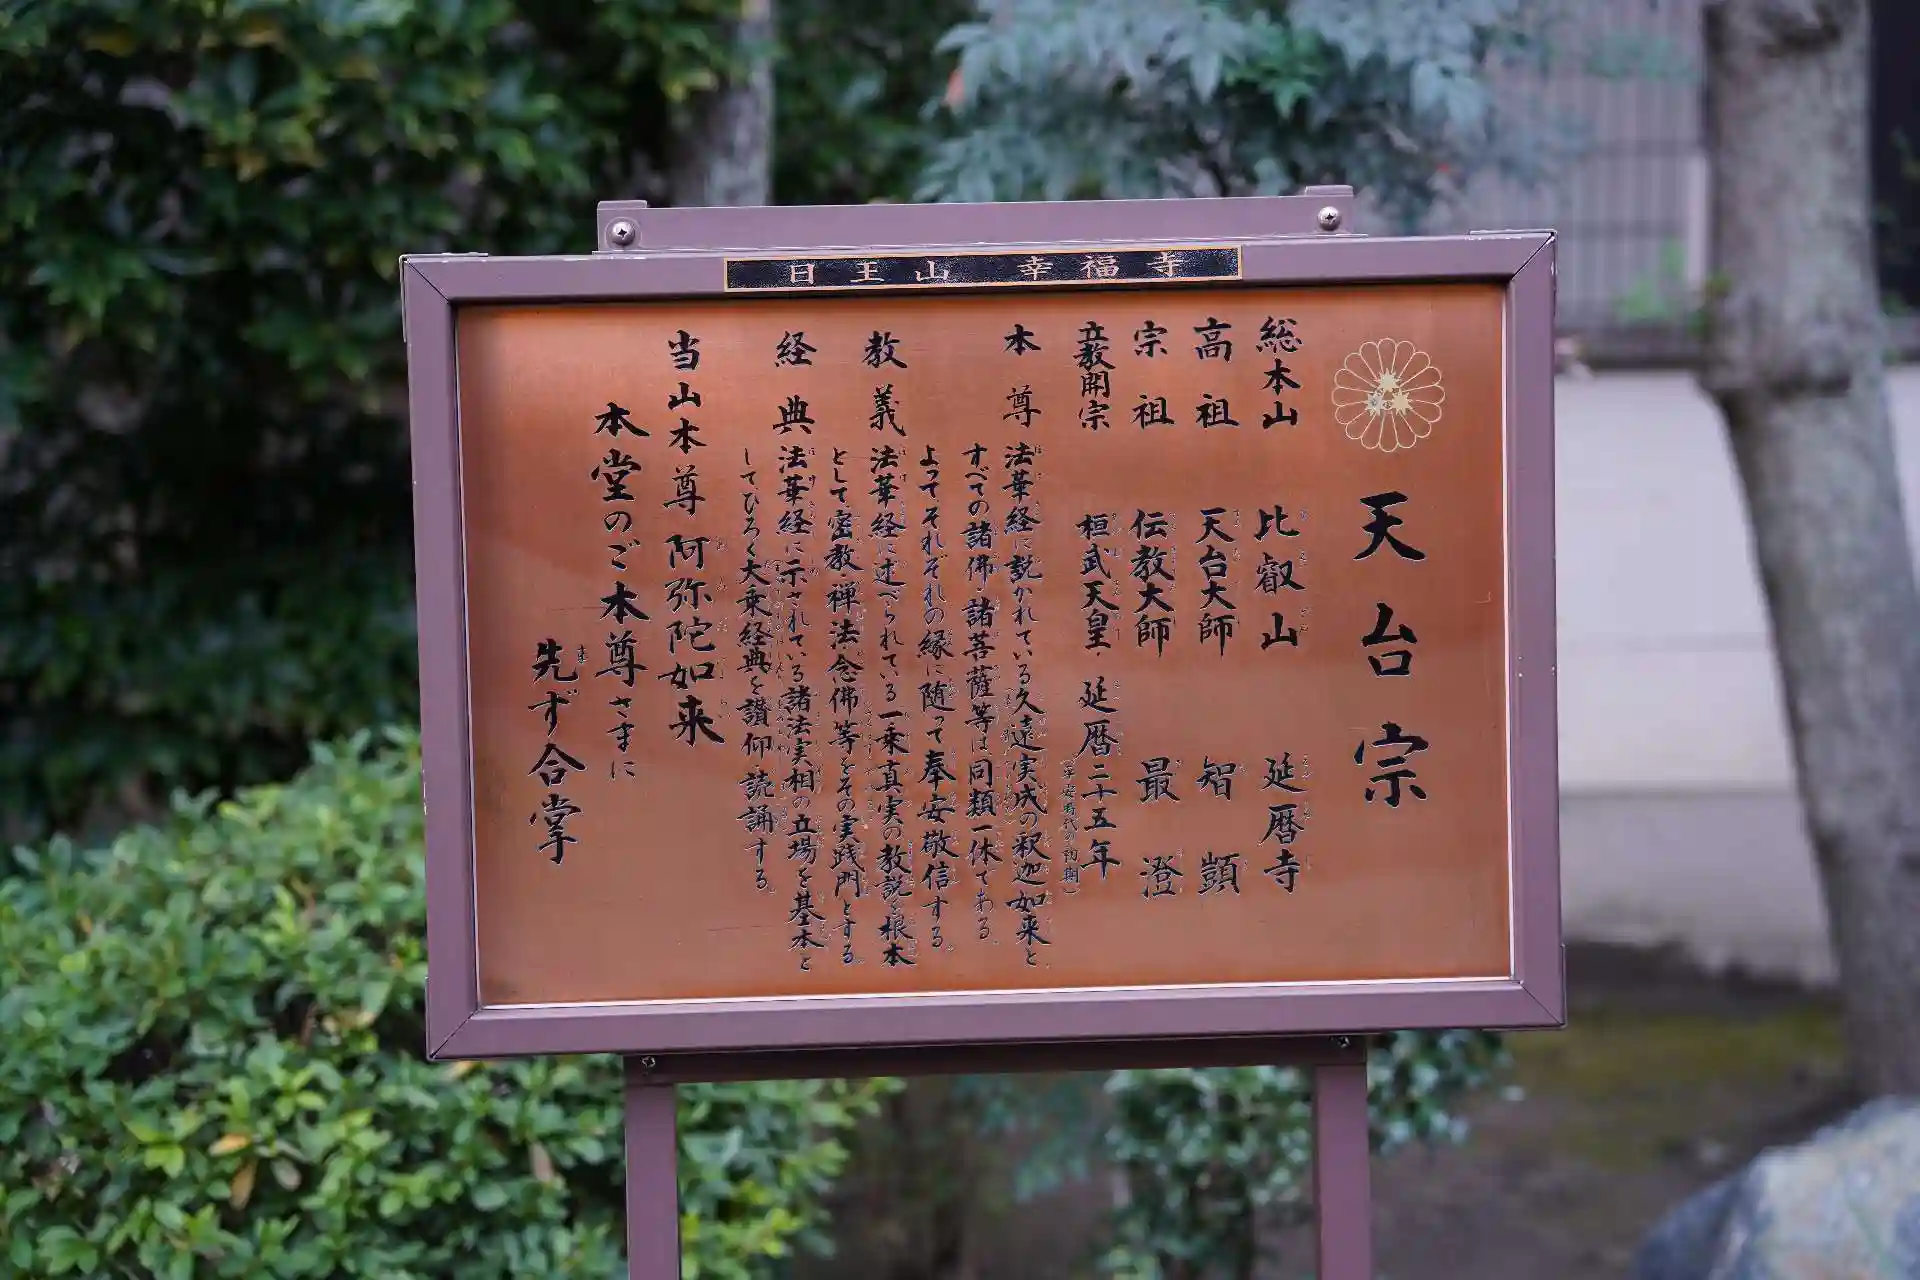 日王山 幸福寺
天台宗
総本山 比叡山 延暦寺
高祖 天台大師 智顗
宗祖 伝教大師 最澄
立教開宗 桓武天皇・延暦二十五年
(平安時代の初期)
本尊 法華経に説かれている久遠実成の釈迦如来と
すべての諸佛・諸菩薩等は同類一体である。
よってそれぞれの縁に随って奉安敬信する。
教義 法華経に述べられている一乗真実の教説を根本
として密教・禅法・念佛等をその実践門とする。
経典 法華経に示されている諸法実相の立場を基本と
してひろく大乗経典を讃仰読誦する。
当山本尊 阿弥陀如来
本堂のご本尊さまに
先ず合掌